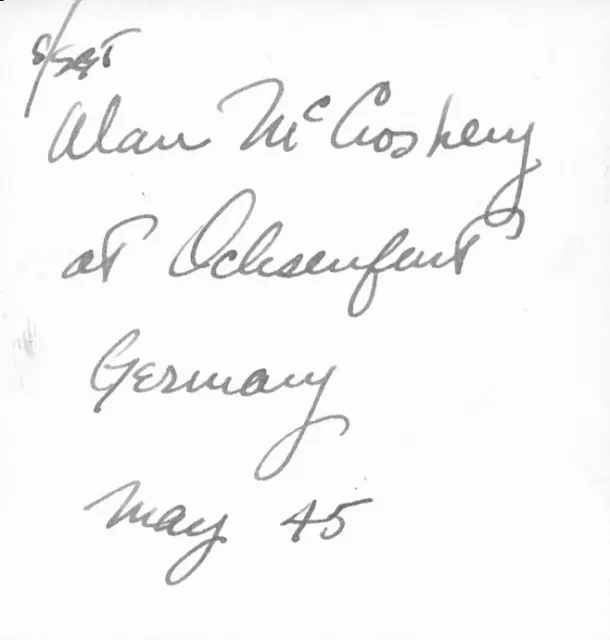 S/SGT
Alan McCroskery
at Ochsenfurt
Germany
May 45